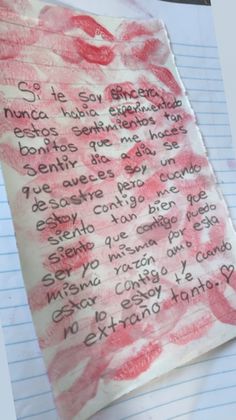 Si te soy sincera
nunca había experimentado
estos sentimientos tan
bonitos que me haces
sentir dia a dia, se
que aveces soy un
desastre pero cuando
estoy contigo me
siento tan bien que
siento que contigo puedo
ser yo misma por esta
misma razón amo
estar contigo y cuando
no lo estoy te
extraño tanto. ♡